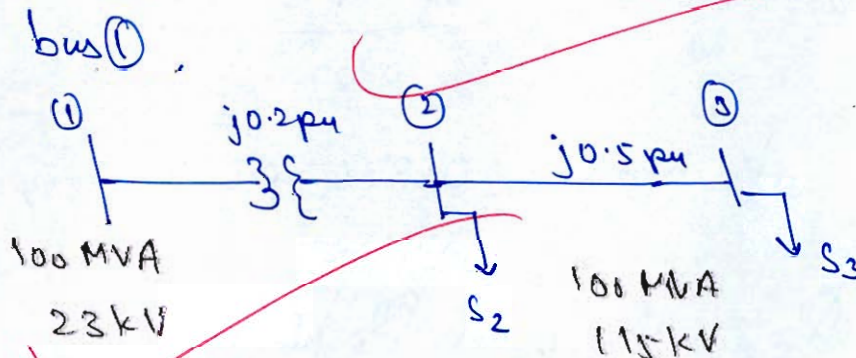 bus ① .
① j0.2pu ② j0.5 pu ③
100 MVA
23 kV
S2
100 MVA
115 kV
S3